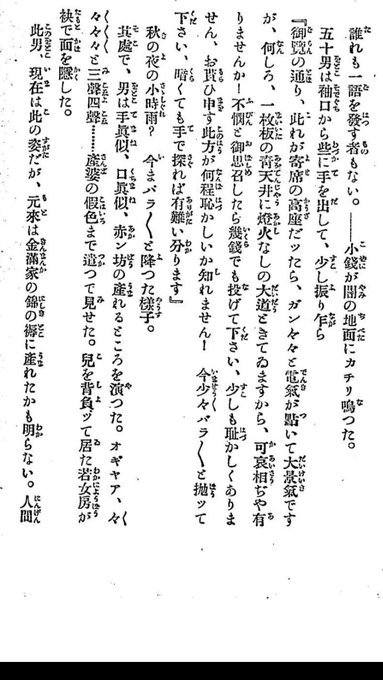 誰れも一語を發する者もない。――小錢が闇の地面にカチリ鳴つた。
五十男は袖口から些に手を出して、少し振り乍ら
『御覽の通り、此れが寄席の高座だッたら、ガン々々と電氣が點いて大景氣です
が、何しろ、一枚板の青天井に燈火なしの大道ときてゐますから、可哀相ぢや有
りませんか！不憫と御思召したら幾錢でも投げて下さい、少しも耻かしくありま
せん、お貰ひ申す此方が何程恥かしいか知れません！　今少々バラ〱と抛ッて
下さい、暗くても手で探れば有難い分ります』
秋の夜の小時雨？　今まバラ〱と降つた樣子。
其處で、男は手眞似、口眞似、赤ン坊の產れるところを演つた。オギャア、々
々々々と三聲四聲……產婆の假色まで遣つて見せた。兒を背負ッて居た若女房が
袂で面を隱した。
此男、現在は此の姿だが、元來は金滿家の錦の褥に產れたかも明らない。人間